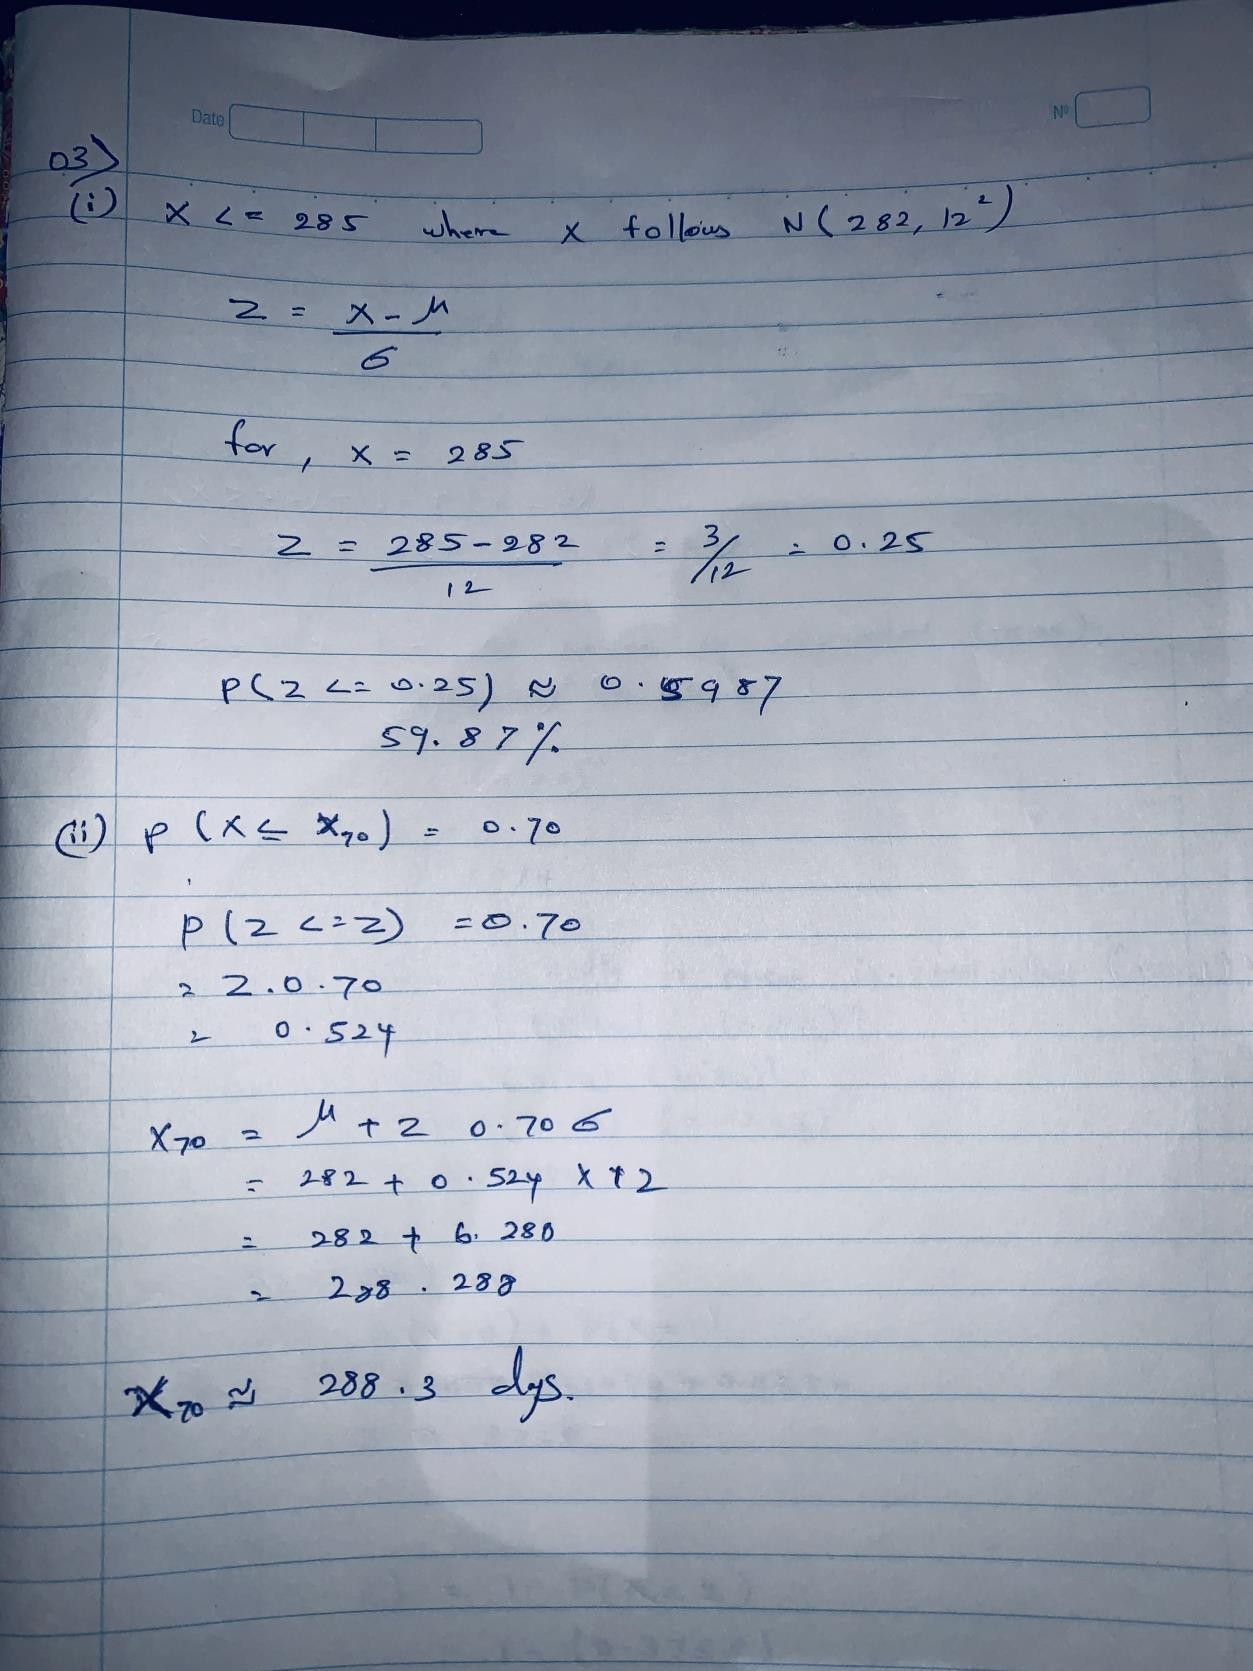 Date
Nº
03)
(i) X <= 285 where X follows N(282, 12²)
Z = X-μ
σ
for, X = 285
Z = 285-282 = 3/12 = 0.25
12
P(Z <= 0.25) ≈ 0.5987
59.87%
(ii) P (X ≤ X70) = 0.70
P (Z <= Z) = 0.70
= Z.0.70
= 0.524
X70 = μ + Z 0.70 σ
= 282 + 0.524 x 12
= 282 + 6.280
= 288.288
X70 ≈ 288.3 dys.